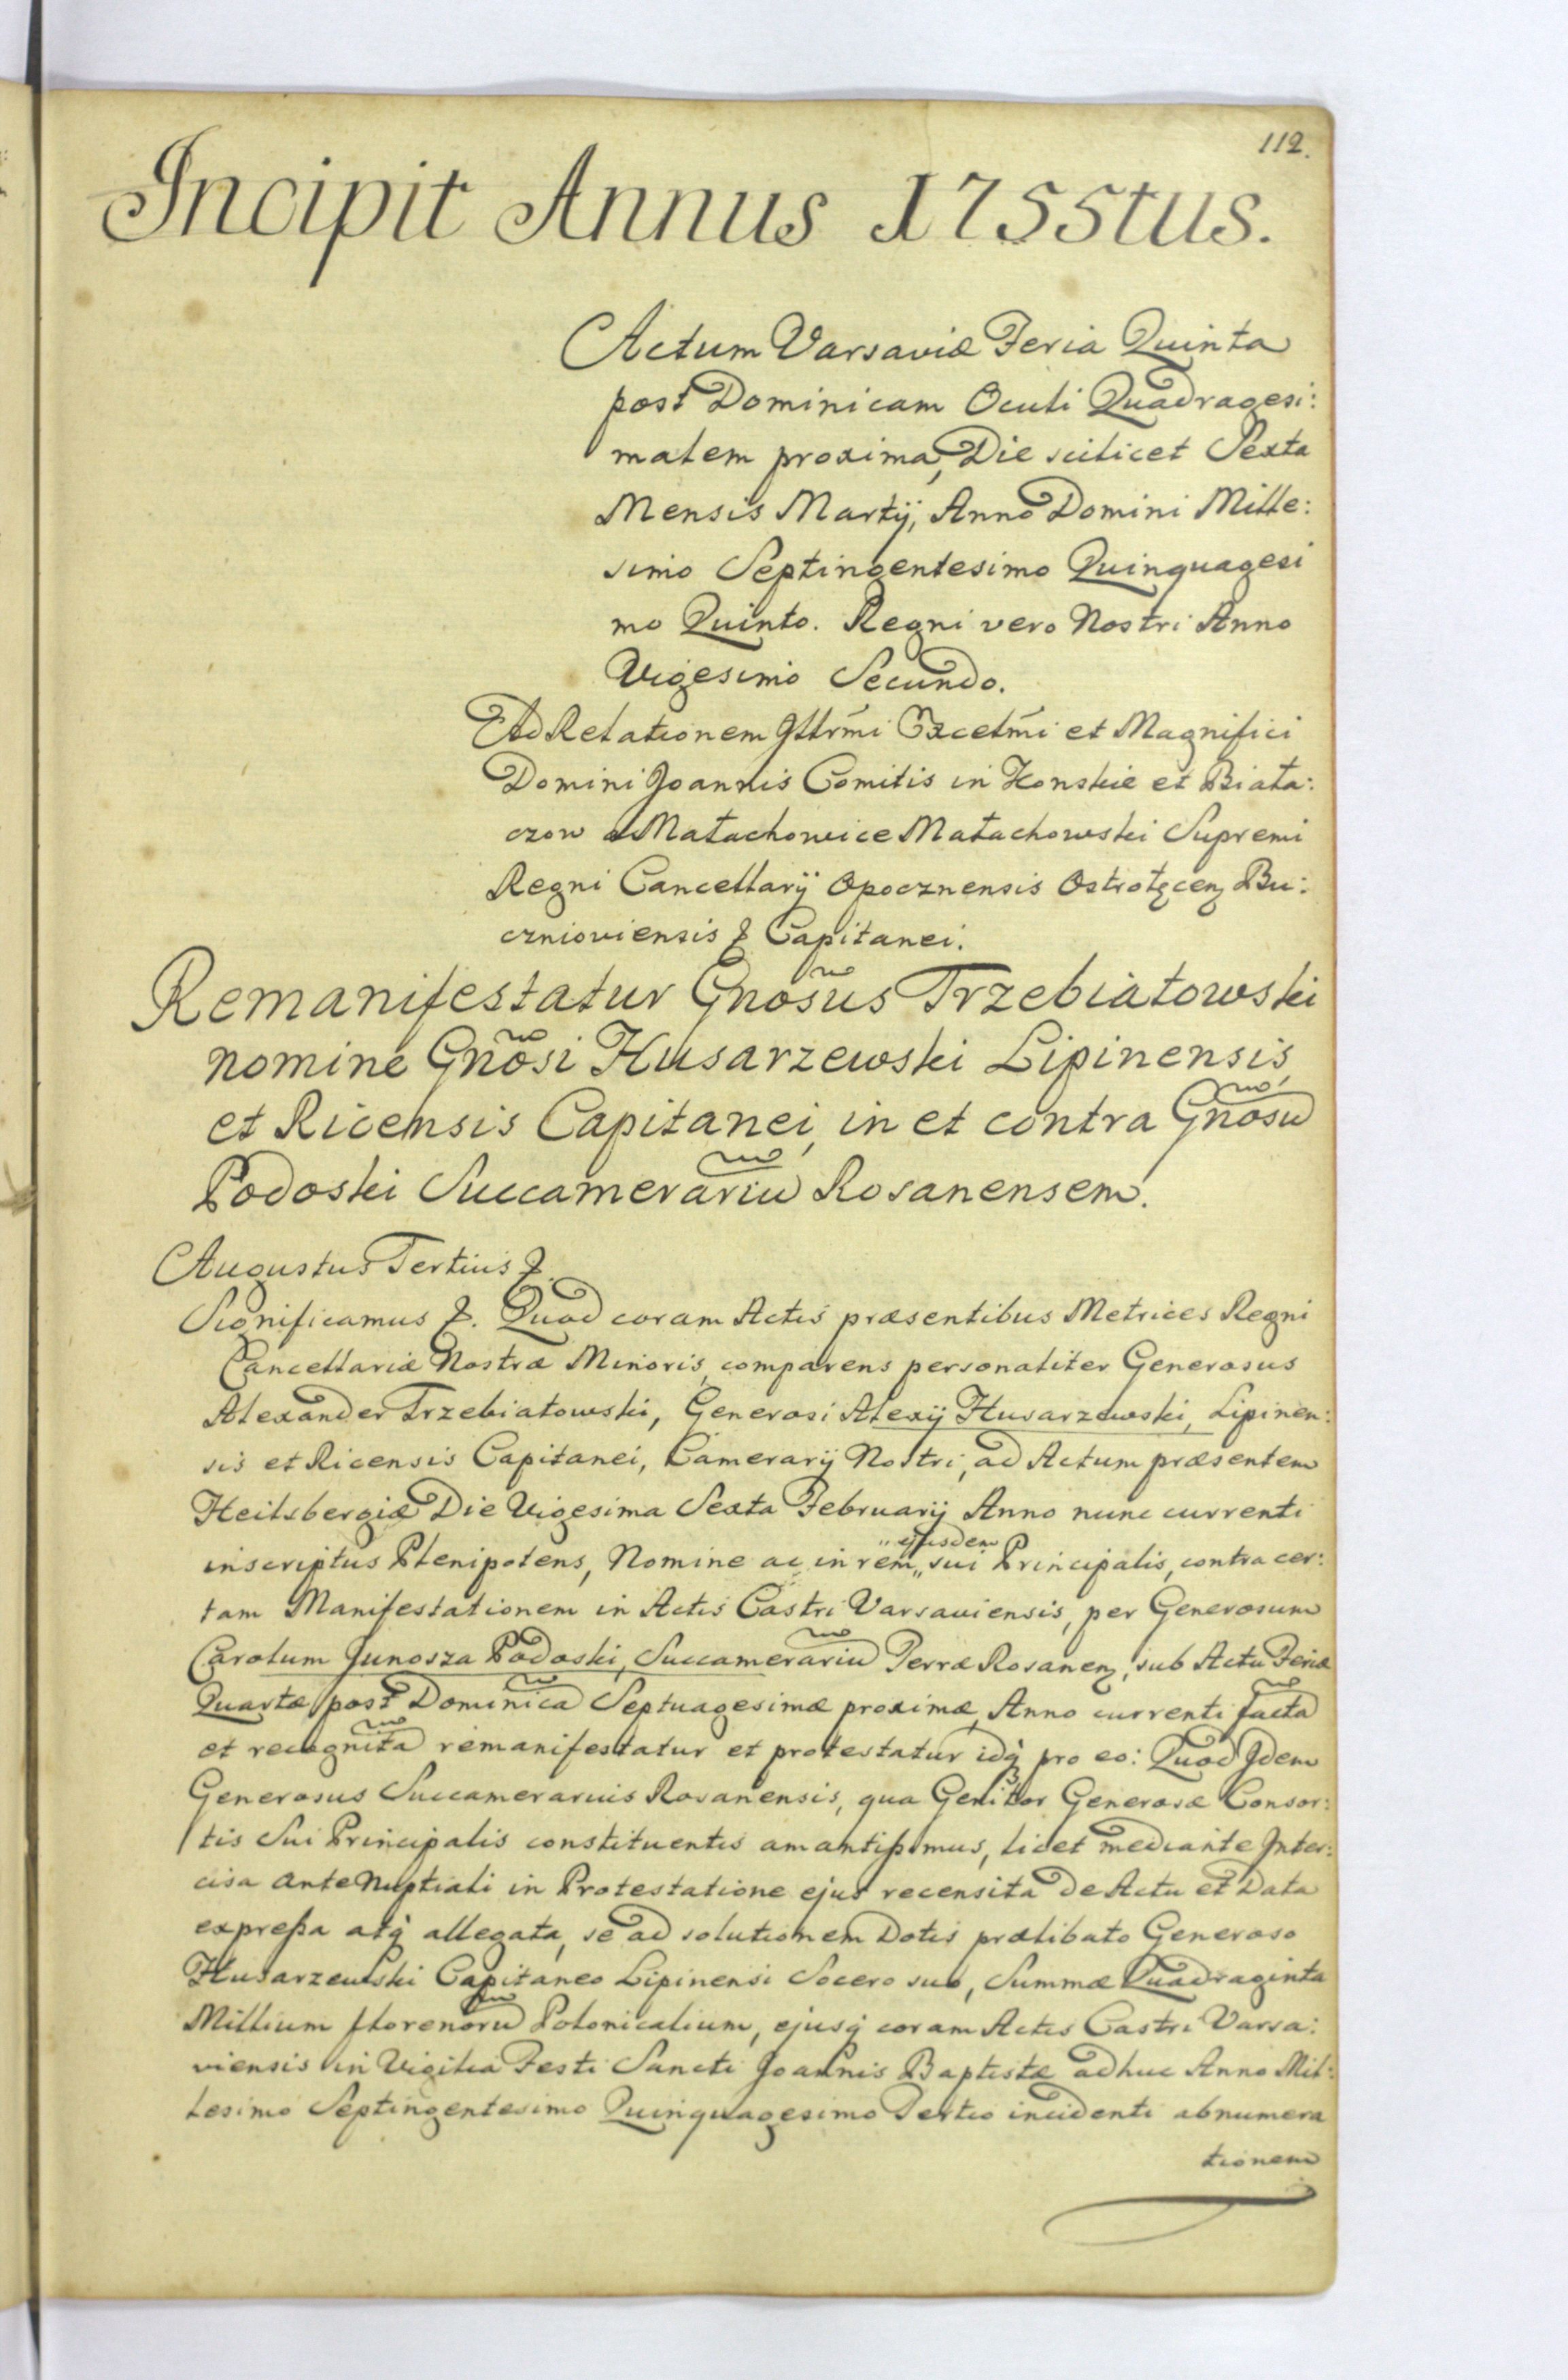 112.
Incipit Annus 1755tus.
Actum Varsaviæ Feria Quinta
post Dominicam Oculi Quadragesi:
malem proxima, Die scilicet Sexta
Mensis Martij, Anno Domini Mille:
simo Septingentesimo Quinquagesi
mo Quinto. Regni vero Nostri Anno
Vigesimo Secundo.
Ad Relationem Illrmi Excelmi et Magnifici
Domini Joannis Comitis in Konskie et Biała:
czow a Małachowice Małachowski Supremi
Regni Cancellarij Opocznensis Ostrołęcen Bu:
cznioviensis & Capitanei.
Remanifestatur Gnosus Trzebiatowski
nomine Gnosi Husarzewski Lipinensis
et Ricensis Capitanei, in et contra Gnosu
Podoski Succamerariu Rosanensem.
Augustus Tertius &.
Significamus &. Quod coram Actis præsentibus Metrices Regni
Cancellariæ Nostræ Minoris, comparens personaliter Generosus
Alexander Trzebiatowski, Generosi Alexij Husarzewski, Lipinen:
sis et Ricensis Capitanei, Camerarij Nostri, ad Actum præsentem
Heilsbergiæ Die Vigesima Sexta Februarij Anno nunc currenti
inscriptus Plenipotens, Nomine ac in rem „ejusdem„ sui Principalis, contra cer:
tam Manifestationem in Actis Castri Varsaviensis, per Generosum
Carolum Junosza Podoski, Succamerariu Terræ Rosanen, sub Actu Feriæ
Quartæ post Dominica Septuagesimæ proximæ, Anno currenti facta
et recognita remanifestatur et protestatur idq pro eo: Quod Idem
Generosus Succamerarius Rosanensis, qua Genitor Generosæ Consor:
tis Sui Principalis constituentis amantißimus, licet mediante Inter:
cisa ante Nuptiali in Protestatione ejus recensita de Actu et Data
expreßa atq allegata, se ad solutionem Dotis prælibato Generoso
Husarzewski Capitaneo Lipinensi Socero suo, Summæ Quadraginta
Millium florenoru Polonicalium, ejusq coram Actis Castri Varsa:
viensis in Vigilia Festi Sancti Joannis Baptistæ adhuc Anno Mil:
lesimo Septingentesimo Quinquagesimo Tertio incidenti abnumera
tionem